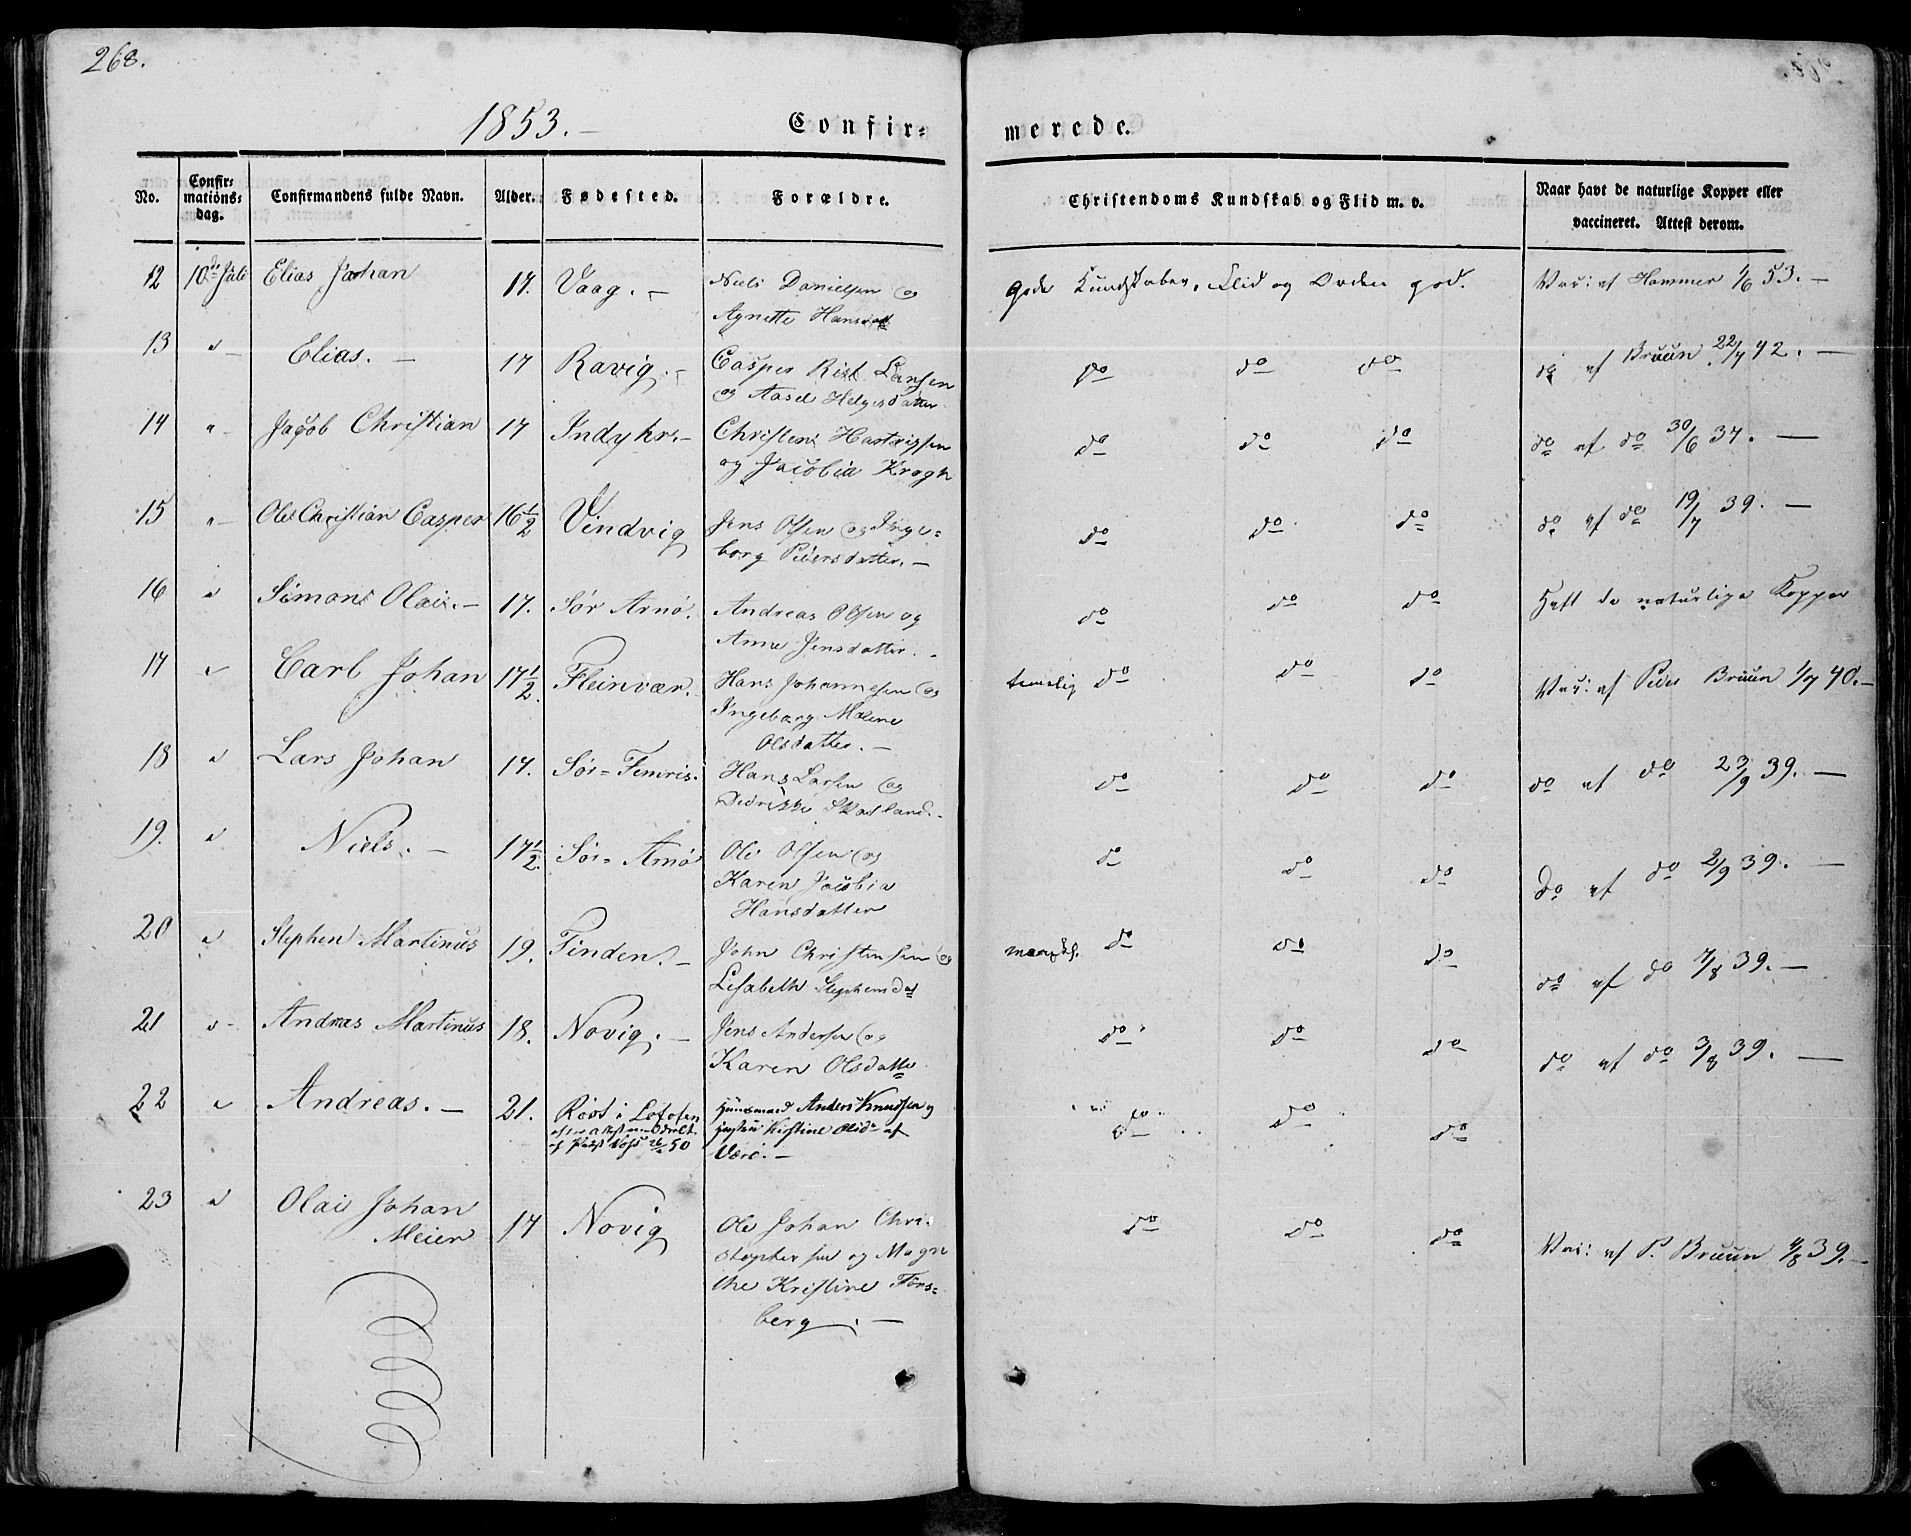 268.
1853. –
Confir-
merede.
No.
Confir-
mations-
dag.
Confirmandens fulde Navn.
Alder.
Fødested.
Forældre.
Christendoms Kundskab og Flid m. v.
Naar havt de naturlige Kopper eller
vaccineret. Attest derom.
12 10de Juli Elias Johan 17. Vaag. – Niels Danielsen og
Agnette Hansdatt
Gode Kundskaber, Flid og Orden god. Vac: af Hammer 1/6 53. –
13 " – Elias. – 17 Ravig. – Casper Rist Larsen
og Aasel Helgesdatter
do do do do af Bruun 22/7 42. –
14 " – Jacob Christian 17 Indyhr. – Christen Hartvigsen
og Jacobia Krogh
do do do do af do 30/6 37. –
15 " – Ole Christian Casper 16 1/2 Vindvig Jens Olsen og Inge-
borg Pedersdatter. –
do do do do af do 19/7 39. –
16 " Simon Olai. – 17. Sør Arnø. Andreas Olsen og
Anne Jensdatter. –
do do do Haft de naturlige Kopper
17 " Carl Johan 17 1/2 Fleinvær. Hans Johannesen og
Ingeborg Malene
Olsdatter. –
temelig do do do Vac: af Peder Bruun 1/7 40. –
18 " Lars Johan 17. Sør-Femris. Hans Larsen og
Didrikke Skotland. –
do do do do af do 23/9 39. –
19. " Niels. – 17 1/2. Sør-Arnø Ole Olsen og
Karen Jacobia
Hansdatter
do do do do af do 2/9 39. –
20 " Stephen Martinus 19. Finden. – John Christensen og
Lisabeth Stephensdat
do do do do af do 7/8 39. –
21 " – Andreas Martinus 18. Novig. – Jens Andersen og
Karen Olsdatte
do do do do af do 3/8 39. –
22 " Andreas. – 21. Røst i Lofoten Huusmand Anders Knudsen og
Kirstine Olsdr af
Værø. –
do do do
23 " Olai Johan
Meier 17 Novig Ole Johan Chri-
stophersen og Magre-
the Kristine Fors-
berg. –
do do do Vac: af P. Bruun 4/8 39. –